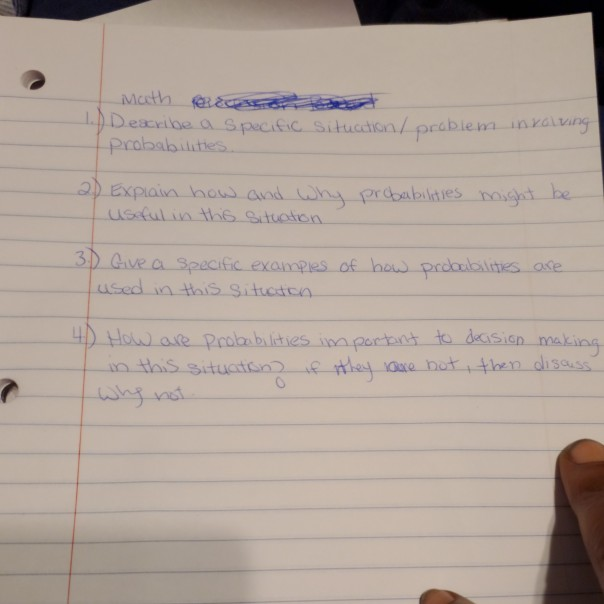 Math
1.) Describe a specific situation/problem involving
probabilities.
2) Explain how and why probabilities might be
useful in this situation
3.) Give a specific examples of how probabilities are
used in this situation
4) How are probabilities important to decision making
in this situation? if they are not, then discuss
why not.